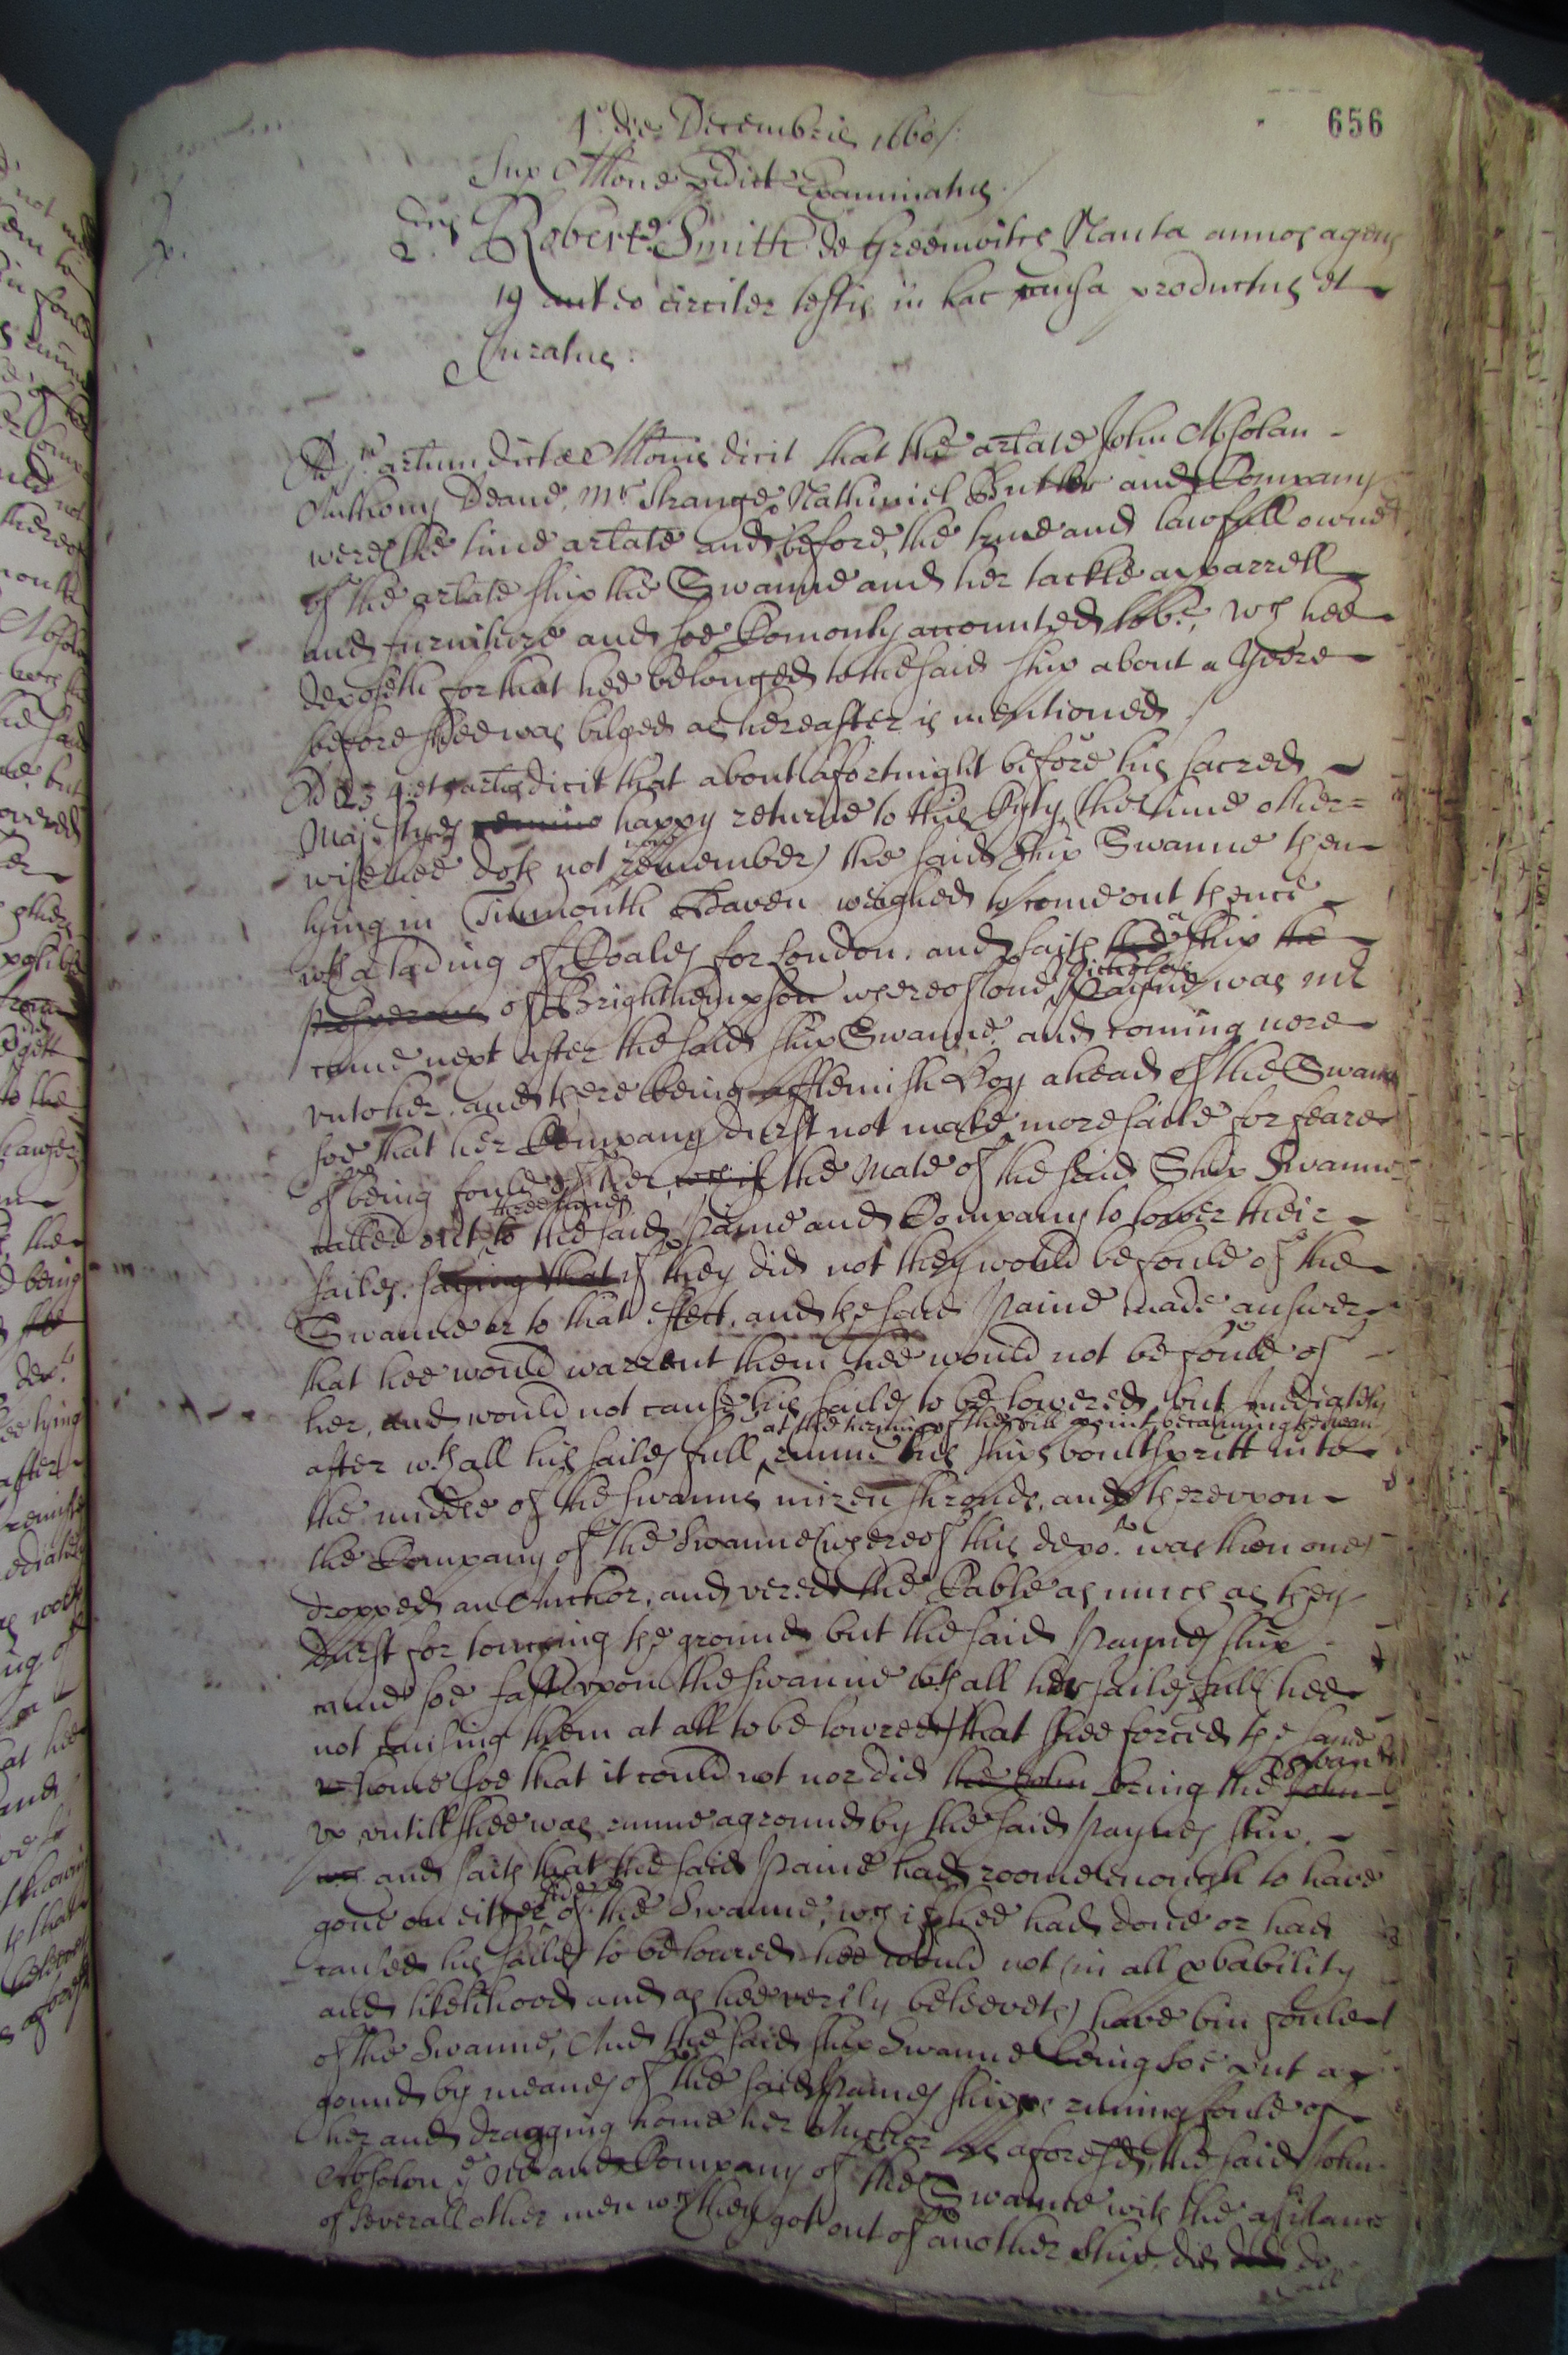 656
1o. die Decembris 1660/.
Sup Allone pdict Examinatus./
2us
Robertus Smith de Greenwitch Nauta annos agens
19 aut eo circiter testis in hac causa productus et
Juratus:
Ad jm artlum dictæ Allonis dicit that the artlate John Absolon
Anthony Deane, Mr Strange, Nathaniel Butler and Company
were the time artlate and before, the true and lawfull owners
of the artlate ship the Swanne and her tackle apparrell
and furniture and soe Comonly accounted to be, wch hee
deposeth for that hee belonged to the said ship about a Yeere
before shee was bilged as hereafter is mentioned /
Ad 2 3 4 et artlos dicit that about a fortnight before his sacred
Majestyes happy returne to this Cyty (the time other=
wise hee doth not now remember) the said ship Swanne then
lying in Tinmouth Haven weighed to come out thence
wth a lading of Coales for London, and saith a ship the
of Brighthempson whereof one Nicholas Payne was mr
came next after the said ship Swanne, and coming nere
vnto her, and there being a fflemish Boy ahead of the Swanne
soe that her Company durst not make more saile for feare
of being foule of her, the Mate of the said Ship Swanne
called out three times to the said Paine and Company to lower their
sailes, saying that if they did not they would be foule of the
Swanne or to that effect, and the said Paine made answer
that hee would warrent them hee would not be foule of
her, and would not cause his sailes to be lowered, but imediately
at the coming of the sill point becalming the swan
after wth all his sailes full runne his ships boultspritt into
the middle of the Swanns mizen shrouds, and therevpon
the Company of the Swanne (whereof this depot. was then one)
dropped an Anchor, and vered the Cable as much as they
durst for touching the ground but the said Paynes ship
came soe fast vpon the Swanne wth all her sailes full (hee
not causing them at all to be lowred) that shee forced the same
home soe that it could not nor did the John bring the Swanne John
vp vntill shee was runne aground by the said Paynes ship.
and saith that the said Paine had roome enough to have
gone on either side of the Swanne, wch if hee had done or had
caused his sailes to be lowred hee would not (in all pbability
and likelihood and as hee verily beleeveth) have bin foule
of the Swanne, And the said ship Swanne being soe put a
gound by meanes of the said Paines shipps runing foule of
her and dragging home her Anchor as aforesd, the said John
Absolon ye Mr and Company of the Swanne with the assistance
of severall other men wch they got out of another ship, did do
all